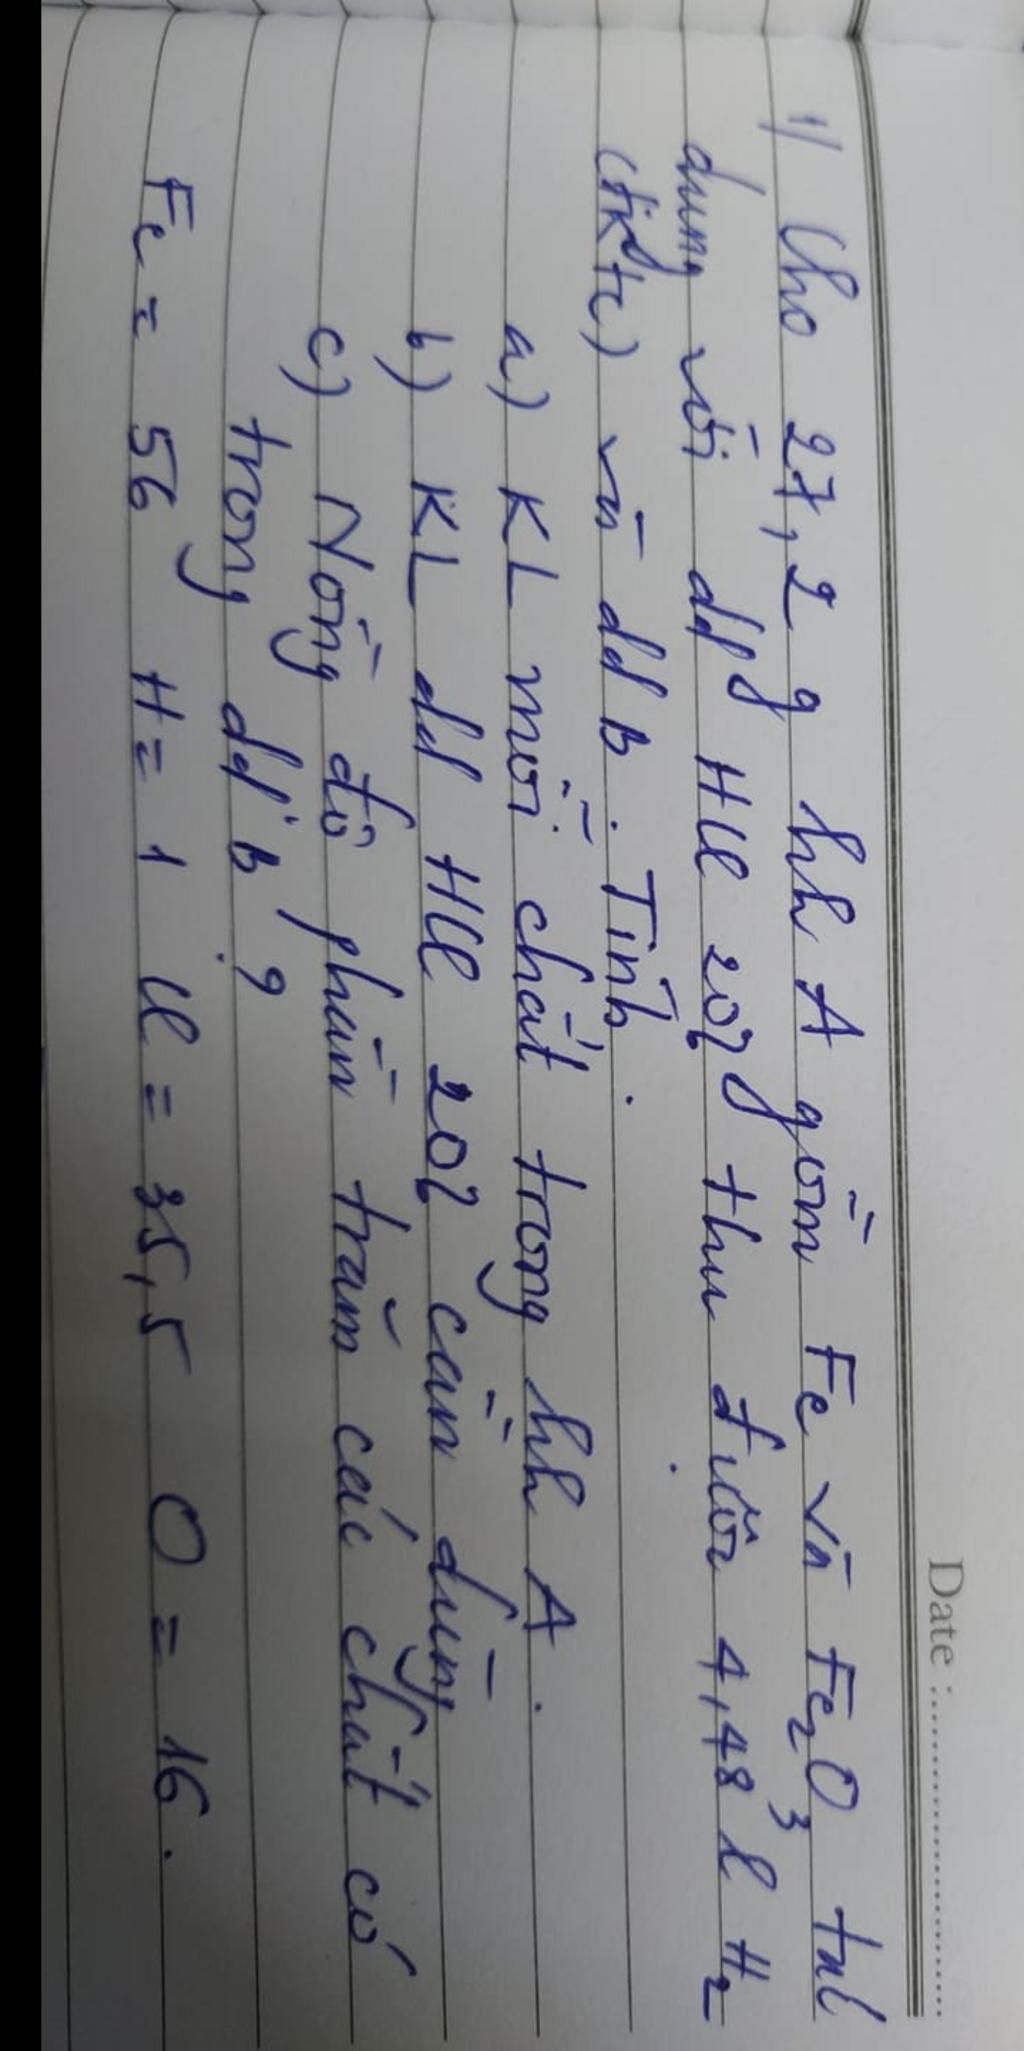 Date :
1/ Cho 27,2 g hh A gồm Fe và Fe2O3 tác
dụng với dd HCl 20% thu được 4,48 l H2
(đktc) và dd B. Tính.
a) KL mỗi chất trong hh A.
b) KL dd HCl 20% cần dùng
c) Nồng độ phần trăm các chất có
trong dd B ?
Fe = 56 H = 1 Cl = 35,5 O = 16.